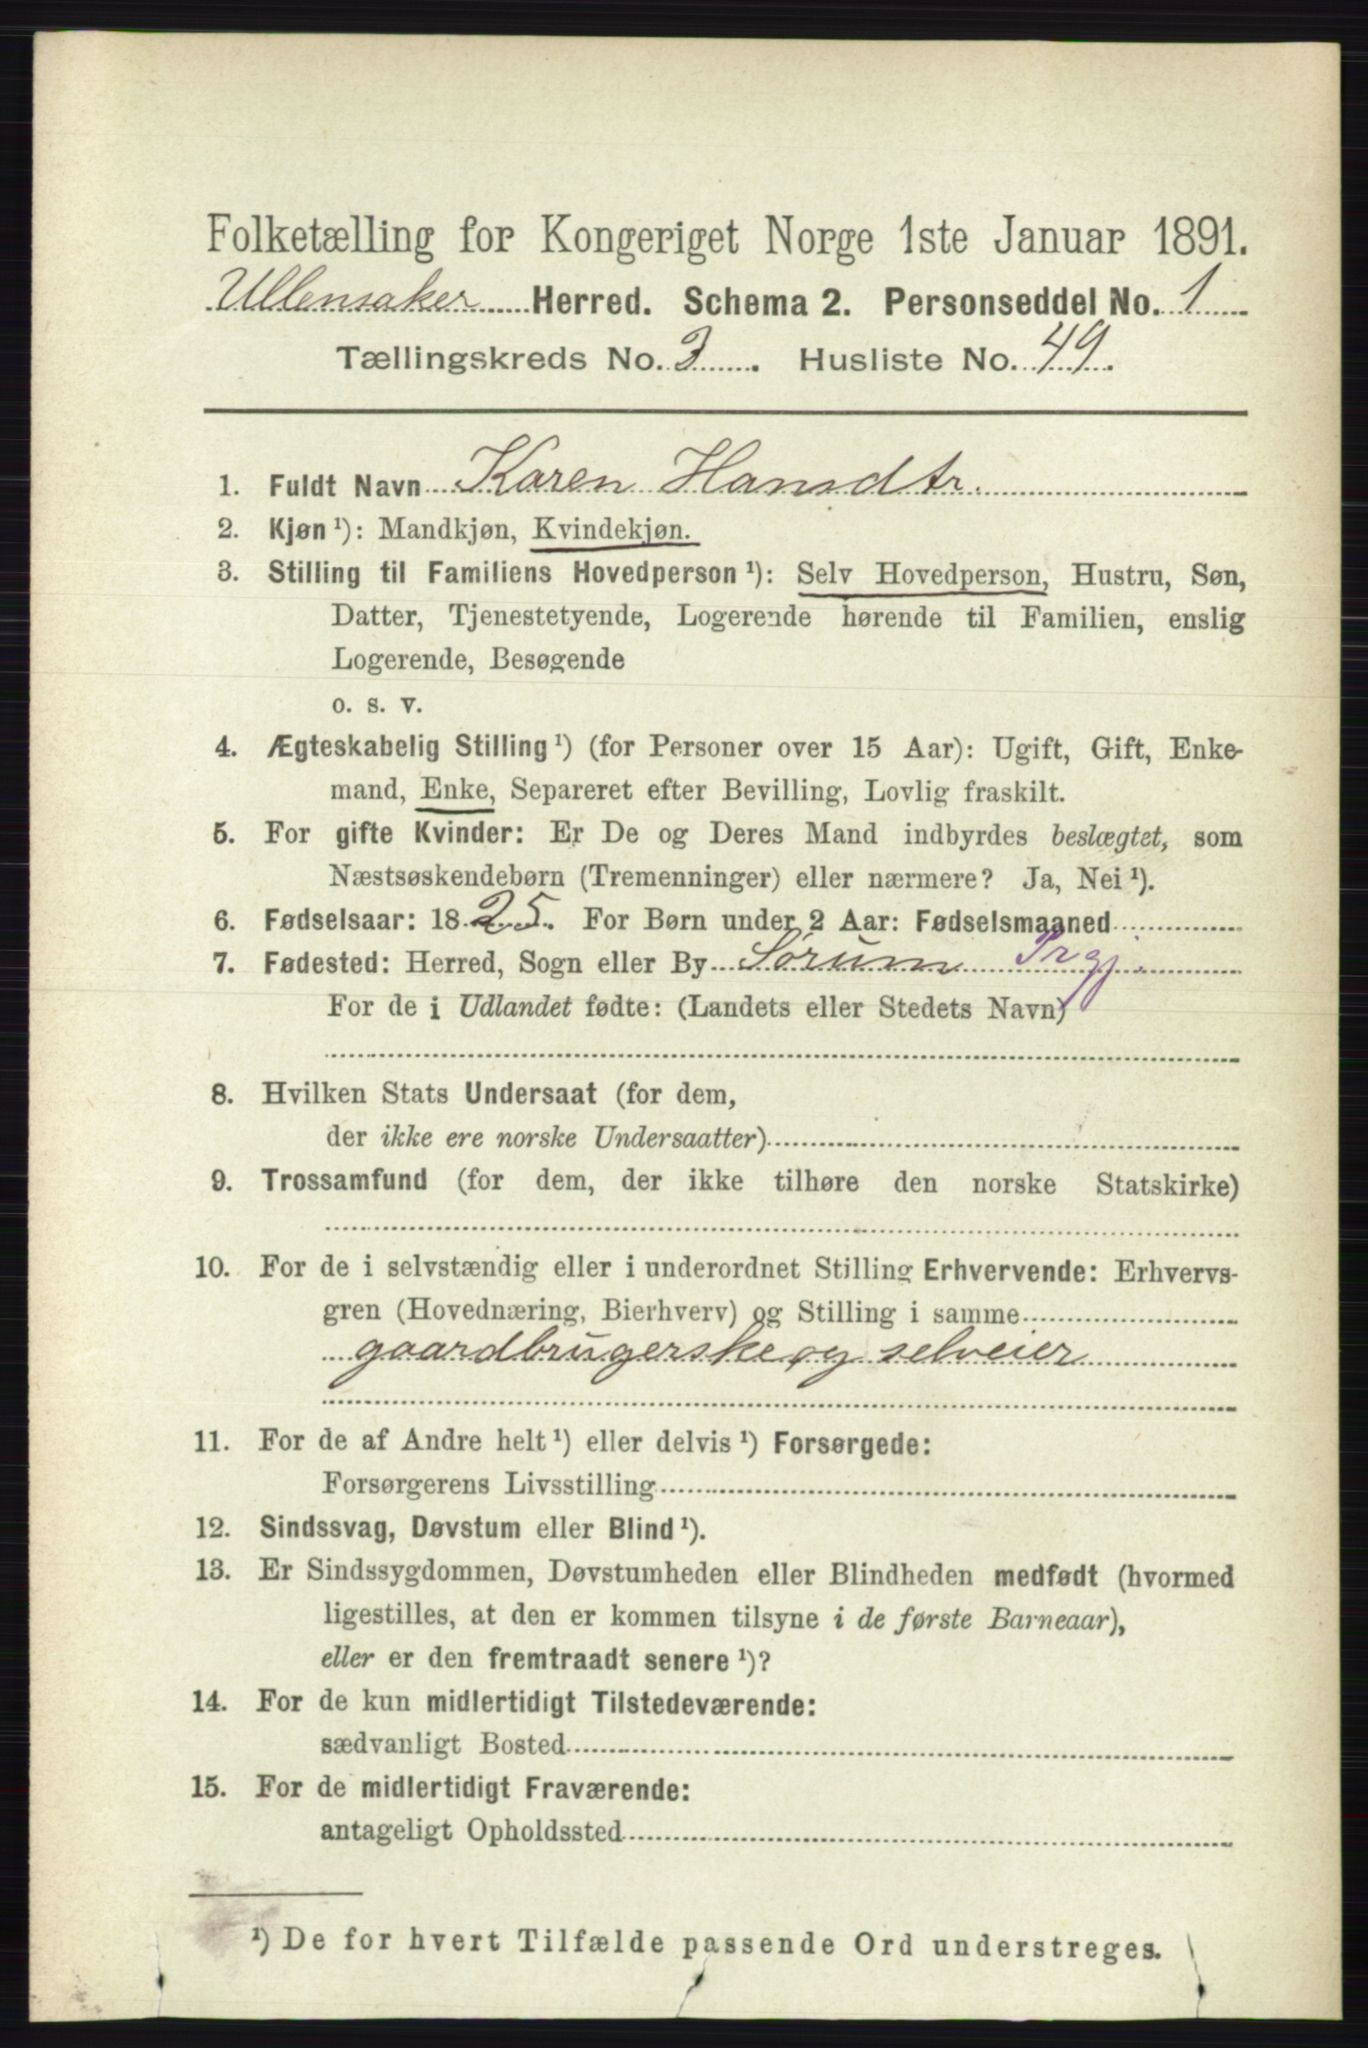 Folketælling for Kongeriget Norge 1ste Januar 1891.
Ullensaker Herred. Schema 2. Personseddel No. 1
Tællingskreds No. 3. Husliste No. 49.
1. Fuldt Navn Karen Hansdtr.
2. Kjøn ¹): Mandkjøn, Kvindekjøn.
3. Stilling til Familiens Hovedperson ¹): Selv Hovedperson, Hustru, Søn,
Datter, Tjenestetyende, Logerende hørende til Familien, enslig
Logerende, Besøgende
o. s. v.
4. Ægteskabelig Stilling ¹) (for Personer over 15 Aar): Ugift, Gift, Enke-
mand, Enke, Separeret efter Bevilling, Lovlig fraskilt.
5. For gifte Kvinder: Er De og Deres Mand indbyrdes beslægtet, som
Næstsøskendebørn (Tremenninger) eller nærmere? Ja, Nei ¹).
6. Fødselsaar: 1825. For Børn under 2 Aar: Fødselsmaaned
7. Fødested: Herred, Sogn eller By Sørum Prgj.
For de i Udlandet fødte: (Landets eller Stedets Navn)
8. Hvilken Stats Undersaat (for dem,
der ikke ere norske Undersaatter)
9. Trossamfund (for dem, der ikke tilhøre den norske Statskirke)
10. For de i selvstændig eller i underordnet Stilling Erhvervende: Erhvervs-
gren (Hovednæring, Bierhverv) og Stilling i samme
gaardbrugerske og selveier
11. For de af Andre helt ¹) eller delvis ¹) Forsørgede:
Forsørgerens Livsstilling
12. Sindssvag, Døvstum eller Blind ¹).
13. Er Sindssygdommen, Døvstumheden eller Blindheden medfødt (hvormed
ligestilles, at den er kommen tilsyne i de første Barneaar),
eller er den fremtraadt senere ¹)?
14. For de kun midlertidigt Tilstedeværende:
sædvanligt Bosted
15. For de midlertidigt Fraværende:
antageligt Opholdssted
¹) De for hvert Tilfælde passende Ord understreges.